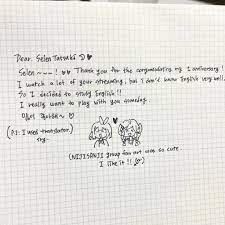 Dear. Selen Tatsuki ♥
Selen ~~~! ♥♥ Thank you for the congratulating my 1 anniversary!
I watch a lot of your streaming, but I don't know English very well.
So I decided to study English!!
I really want to play with you someday.
(P.S: I used translator.
(NIJISANJI group fan art was so cute
I like it!!